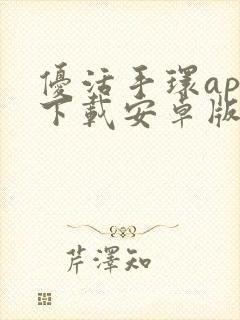 優活手環ap
下載安卓版
芹澤知